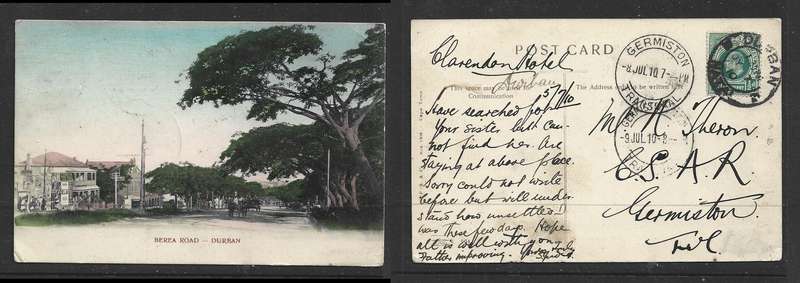 BEREA ROAD — DURBAN
POST CARD
Clarendon Hotel
Durban
5/7/10
This space may be used for
Communication
The Address to be written here
Have searched for
your sister but can-
not find her. Are
staying at above place.
Sorry could not write
before but will under-
stand how unsettled I
was these few days. Hope
all is well with you
Father improving. Yours truly
GERMISTON
8 JUL 10
TRANSVAAL
9 JUL 10
DURBAN
Theron
C.S.A.R.
Germiston